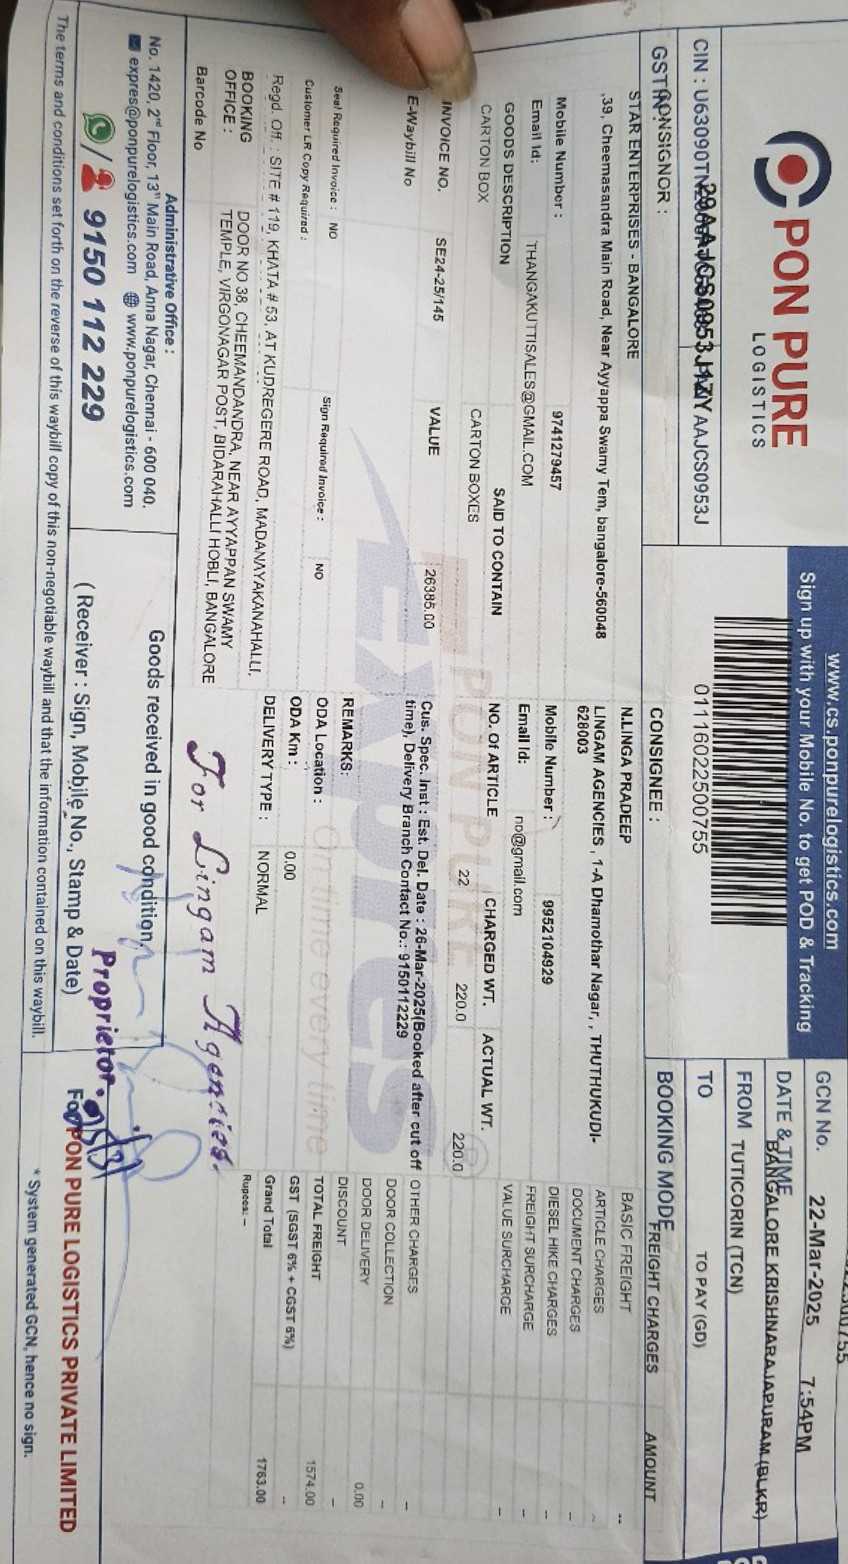 PON PURE
LOGISTICS
www.cs.ponpurelogistics.com
Sign up with your Mobile No. to get POD & Tracking
01116022500755
GCN No.
22-Mar-2025 7:54PM
DATE & TIME
BANGALORE KRISHNARAJAPURAM (BLKR)
FROM TUTICORIN (TCN)
TO
TO PAY (GD)
CIN :
29AAJCS0953J1ZY AAJCS0953J
GSTIN:
CONSIGNOR :
STAR ENTERPRISES - BANGALORE
,39, Cheemasandra Main Road, Near Ayyappa Swamy Tem, bangalore-560048
Mobile Number : 9741279457
Email Id: THANGAKUTTISALES@GMAIL.COM
CONSIGNEE :
N.LINGA PRADEEP
LINGAM AGENCIES , 1-A Dhamothar Nagar, , THUTHUKUDI-
628003
Mobile Number : 9952104929
Email Id: no@gmail.com
BOOKING MODE
FREIGHT CHARGES AMOUNT
BASIC FREIGHT --
ARTICLE CHARGES
DOCUMENT CHARGES --
DIESEL HIKE CHARGES --
FREIGHT SURCHARGE --
VALUE SURCHARGE --
GOODS DESCRIPTION SAID TO CONTAIN NO. Of ARTICLE CHARGED WT. ACTUAL WT.
CARTON BOX CARTON BOXES 22 220.0 220.0
INVOICE NO. SE24-25/145 VALUE 26385.00
E-Waybill No
Cus. Spec. Inst : Est. Del. Date : 26-Mar-2025(Booked after cut off
time), Delivery Branch Contact No.: 9150112229
OTHER CHARGES --
DOOR COLLECTION --
DOOR DELIVERY 0.00
DISCOUNT --
TOTAL FREIGHT 1574.00
GST (SGST 6% + CGST 6%) --
Grand Total 1763.00
Rupees: --
PON PURE
Expres
On time every time
REMARKS:
Seal Required Invoice : NO Sign Required Invoice : NO
Customer LR Copy Required :
ODA Location :
ODA Km : 0.00
DELIVERY TYPE : NORMAL
Regd. Off. : SITE # 119, KHATA # 53, AT KUDREGERE ROAD, MADANAYAKANAHALLI,
BOOKING
OFFICE :
DOOR NO 38, CHEEMANDANDRA, NEAR AYYAPPAN SWAMY
TEMPLE, VIRGONAGAR POST, BIDARAHALLI HOBLI, BANGALORE
Barcode No
For Lingam Agencies.
Proprietor.
Administrative Office :
No. 1420, 2nd Floor, 13th Main Road, Anna Nagar, Chennai - 600 040.
expres@ponpurelogistics.com www.ponpurelogistics.com
9150 112 229
Goods received in good condition
( Receiver : Sign, Mobile No., Stamp & Date)
For PON PURE LOGISTICS PRIVATE LIMITED
The terms and conditions set forth on the reverse of this waybill copy of this non-negotiable waybill and that the information contained on this waybill.
* System generated GCN, hence no sign.